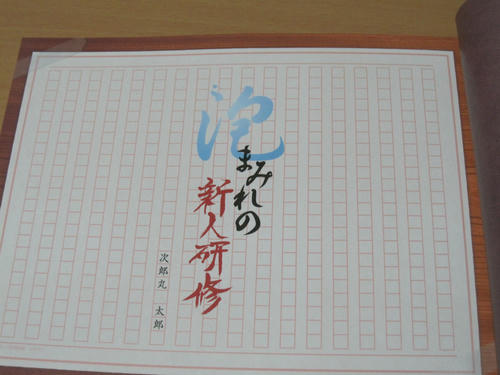 泡まみれの
新人研修
次郎丸 太郎